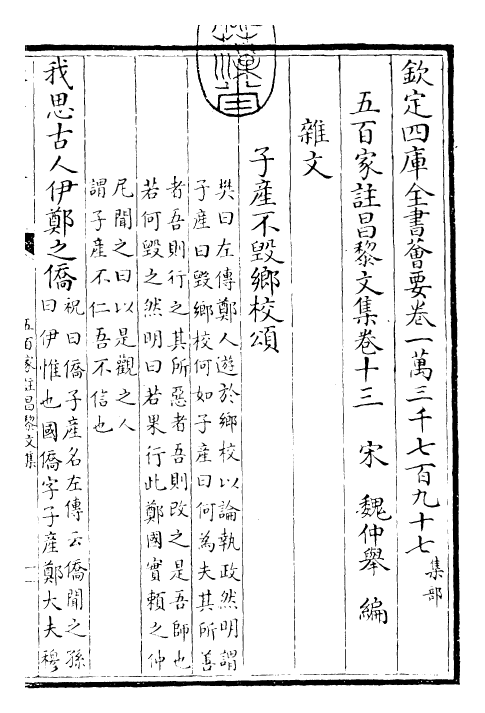 欽定四庫全書薈要卷一萬三千七百九十七 集部
五百家註昌黎文集卷十三 宋 魏仲舉 編
雜文
子產不毀鄉校頌
樊曰左傳鄭人遊於鄉校以論執政然明謂
子產曰毀鄉校何如子產曰何為夫其所善
者吾則行之其所惡者吾則改之是吾師也
若何毀之然明曰若果行此鄭國實賴之仲
尼聞之曰以是觀之人
謂子產不仁吾不信也
我思古人伊鄭之僑
祝曰僑子產名左傳云僑聞之孫
曰伊惟也國僑字子產鄭大夫穆
五百家註昌黎文集